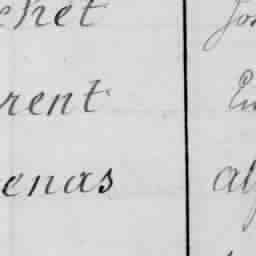 chet Jo
rent En
enas al